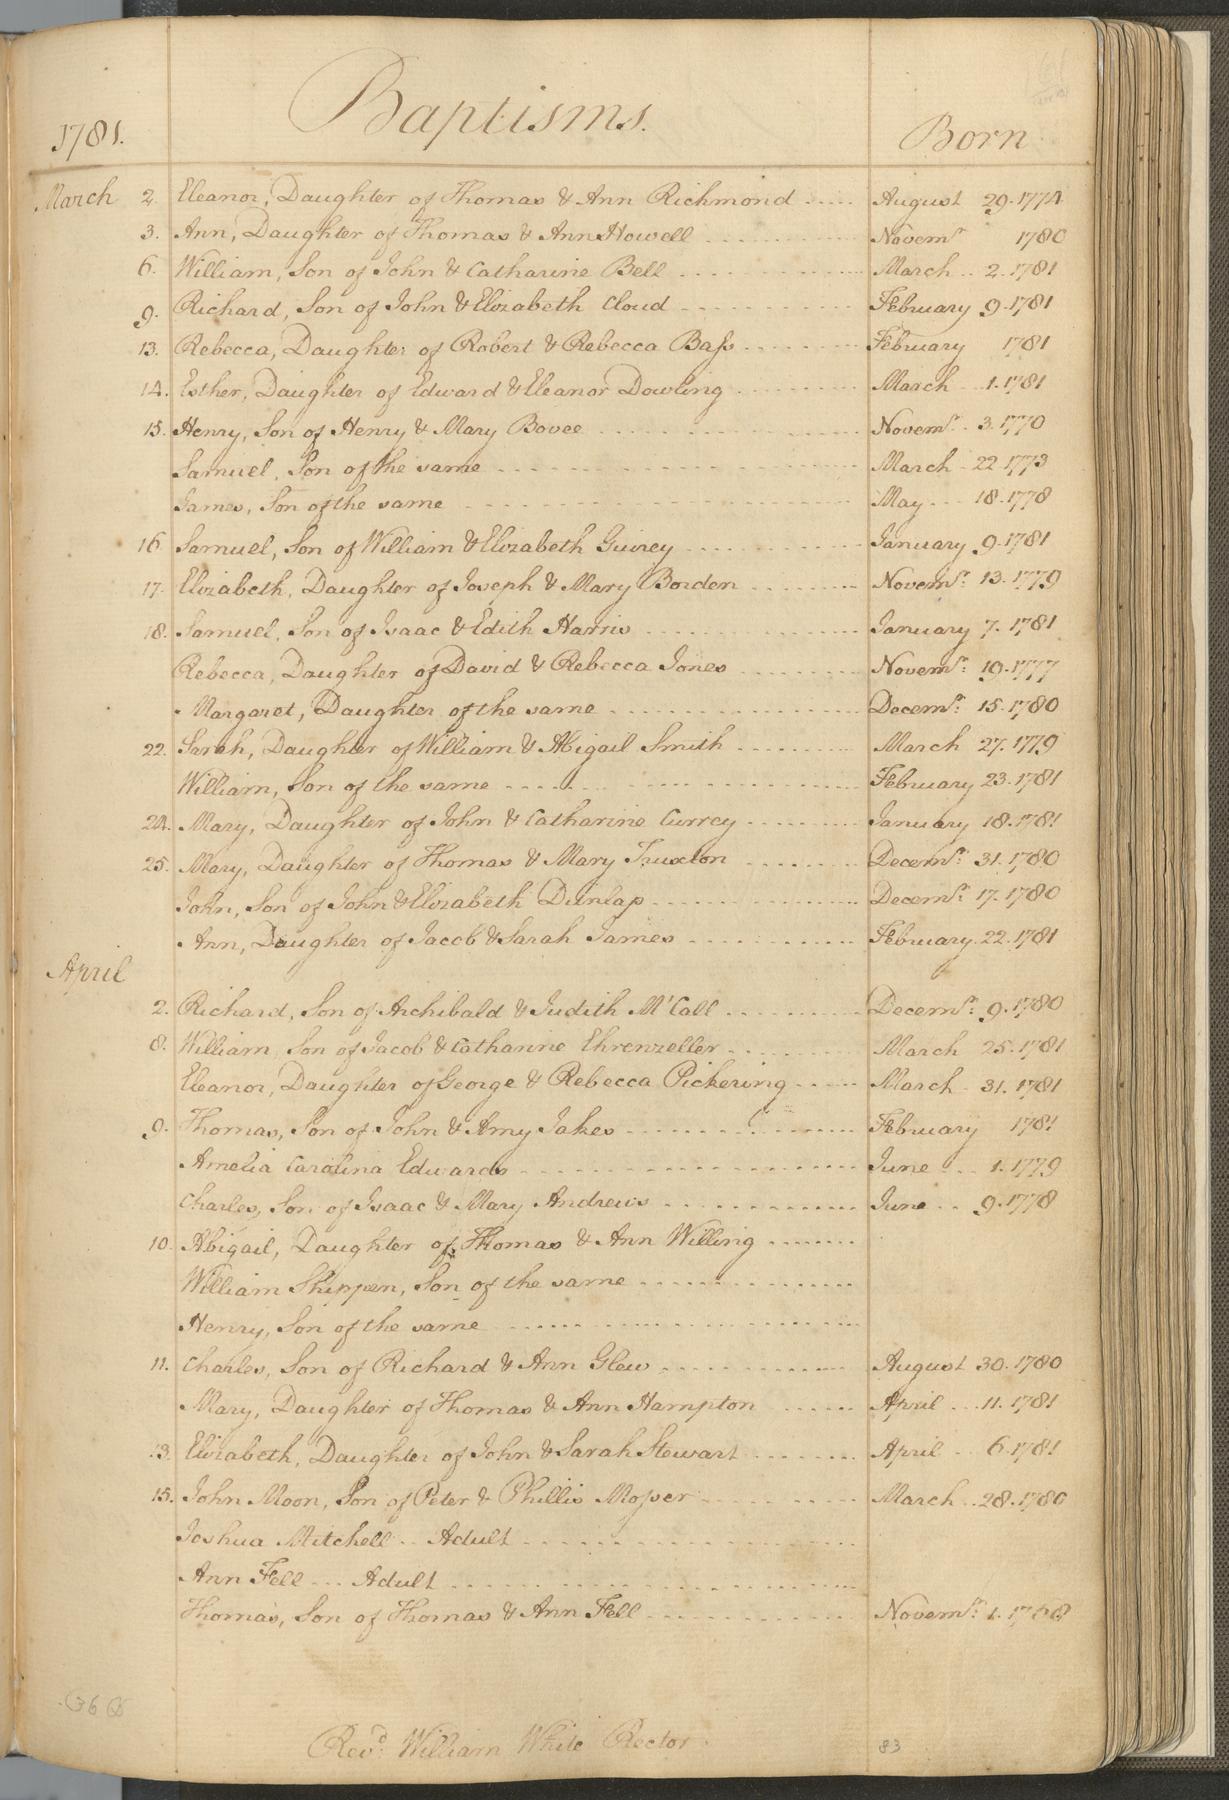 1781. Baptisms. Born
March 2. Eleanor, Daughter of Thomas & Ann Richmond August 29. 1774
3. Ann, Daughter of Thomas & Ann Howell Novemr 1780
6. William, Son of John & Catharine Bell March 2. 1781
9. Richard, Son of John & Elizabeth Cloud February 9. 1781
13. Rebecca, Daughter of Robert & Rebecca Bass February 1781
14. Esther, Daughter of Edward & Eleanor Dowling March 1. 1781
15. Henry, Son of Henry & Mary Bovee Novemr. 3. 1770
Samuel, Son of the same March 22 1773
James, Son of the same May 18. 1778
16 Samuel, Son of William & Elizabeth Guirey January 9. 1781
17. Elizabeth, Daughter of Joseph & Mary Borden Novemr: 13. 1779
18. Samuel, Son of Isaac & Edith Harris January 7. 1781
Rebecca, Daughter of David & Rebecca Jones Novemr: 19. 1777
Margaret, Daughter of the same Decemr: 15. 1780
22. Sarah, Daughter of William & Abigail Smith March 27. 1779
William, Son of the same February 23. 1781
24. Mary, Daughter of John & Catharine Currey January 18. 1781
25. Mary, Daughter of Thomas & Mary Truxton Decemr: 31. 1780
John, Son of John & Elizabeth Dunlap Decemr: 17. 1780
Ann, Daughter of Jacob & Sarah James February. 22. 1781
April
2. Richard, Son of Archibald & Judith M'Call Decemr: 9. 1780
8. William, Son of Jacob & Catharine Ehrenzeller March 25. 1781
Eleanor, Daughter of George & Rebecca Pickering March 31. 1781
9. Thomas, Son of John & Amy Jakes February 1781
Amelia Carolina Edwards June 1. 1779
Charles, Son of Isaac & Mary Andrews June 9. 1778
10. Abigail, Daughter of Thomas & Ann Willing
William Shippen, Son of the same
Henry, Son of the same
11. Charles, Son of Richard & Ann Glew August 30. 1780
Mary, Daughter of Thomas & Ann Hampton April 11. 1781
13. Elizabeth, Daughter of John & Sarah Stewart April 6. 1781
15. John Moon, Son of Peter & Phillis Moser March 28. 1780
Joshua Mitchell Adult
Ann Fell Adult
Thomas, Son of Thomas & Ann Fell Novemr: 1.
Revd: William White Rector
83